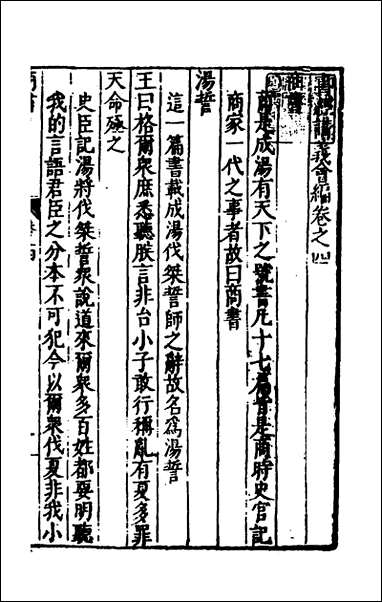 書經講義會編卷之四
商書
商是成湯有天下之號書凡十七篇皆是商時史官記
商家一代之事者故曰商書
湯誓
這一篇書載成湯伐桀誓師之辭故名為湯誓
王曰格爾衆庶悉聽朕言非台小子敢行稱亂有夏多罪
天命殛之
史臣記湯將伐桀誓衆說道來爾衆多百姓都要明聽
我的言語君臣之分本不可犯今以爾衆伐夏非我小